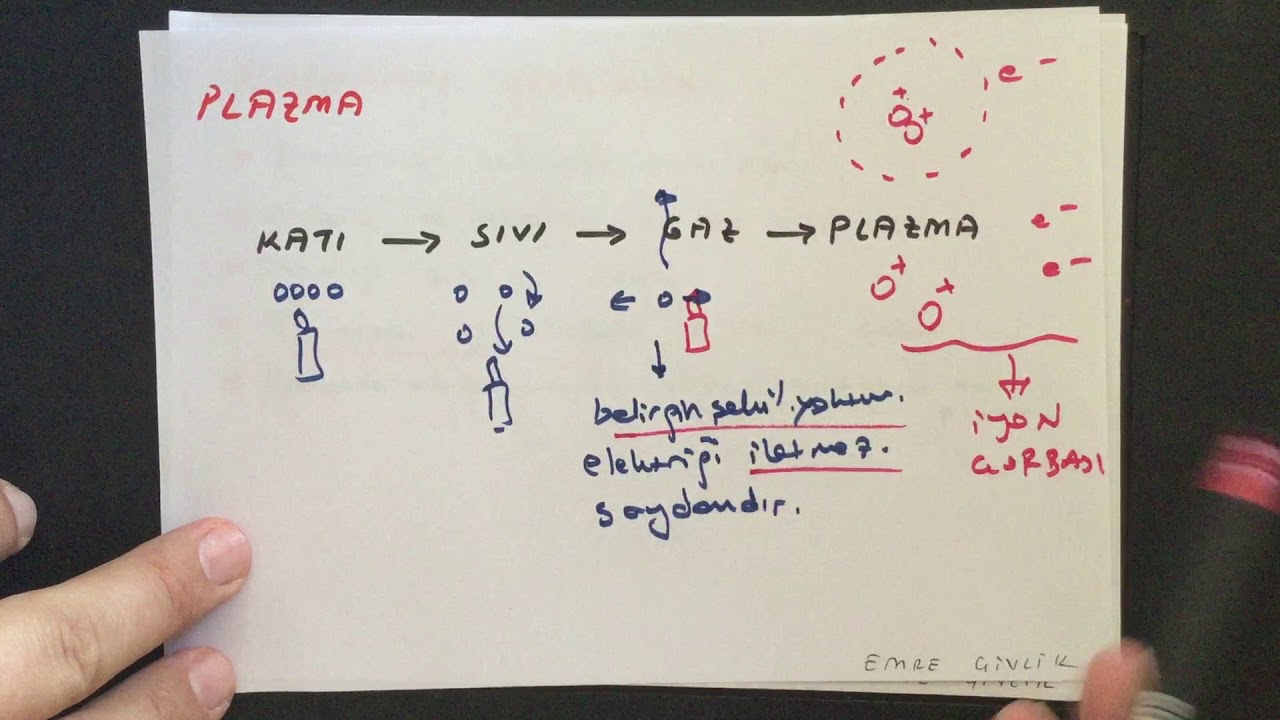 PLAZMA
e-
+
+
KATI → SIVI → GAZ → PLAZMA
e-
e-
+
+
belirgin şekil yoktur.
elektriği iletmez.
saydamdır.
İYON
ÇORBASI
EMRE CİVLİK